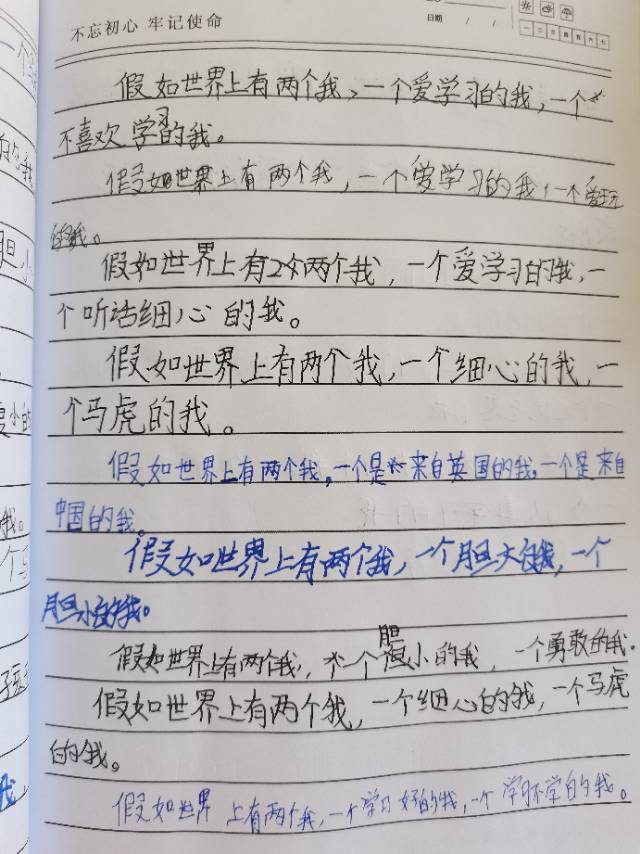 不忘初心 牢记使命
日期 / /
一 二 三 四 五 六 七
假如世界上有两个我，一个爱学习的我，一个
不喜欢学习的我。
假如世界上有两个我，一个爱学习的我，一个爱玩
的我。
假如世界上有两个我，一个爱学习的我，一
个听话细心的我。
假如世界上有两个我，一个细心的我，一
个马虎的我。
假如世界上有两个我，一个是来自英国的我，一个是来自
中国的我。
假如世界上有两个我，一个胆大的我，一个
胆小的我。
假如世界上有两个我，一个胆小的我，一个勇敢的我。
假如世界上有两个我，一个细心的我，一个马虎
的我。
假如世界上有两个我，一个学习好的我，一个学习不学的我。